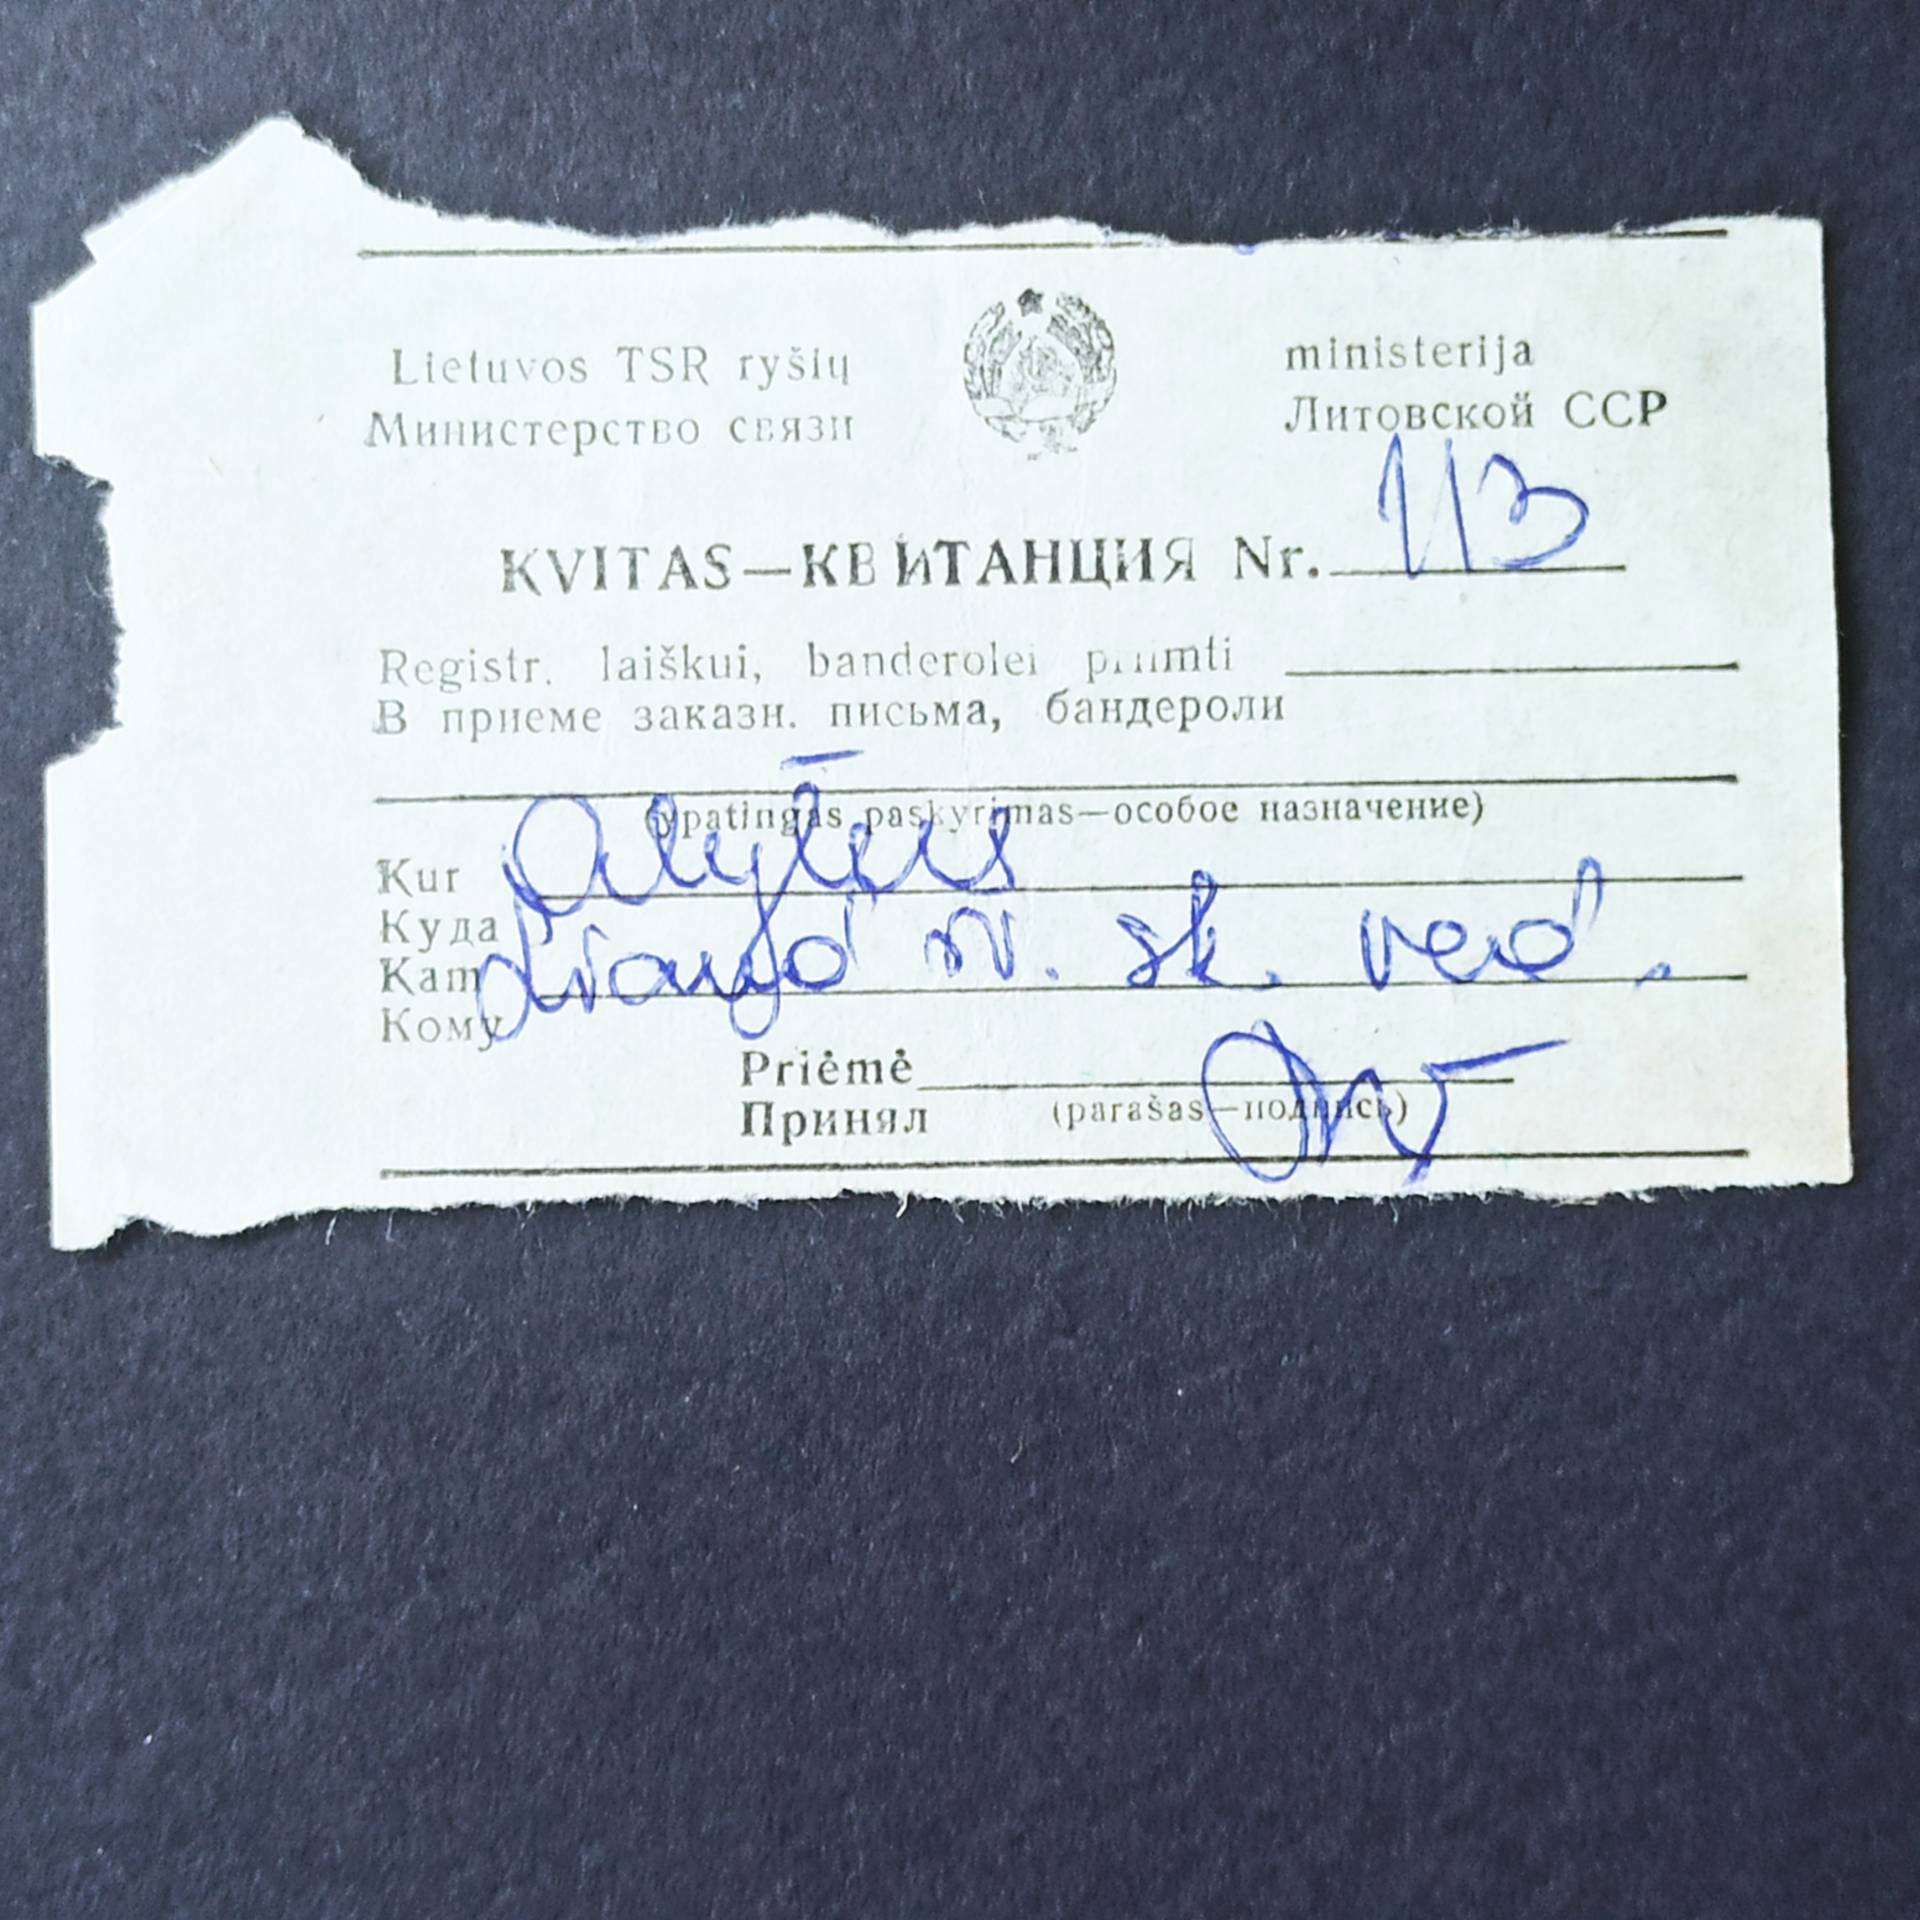 Lietuvos TSR ryšių ministerija
Министерство связи Литовской ССР
KVITAS—КВИТАНЦИЯ Nr. 113
Registr. laiškui, banderolei priimti
В приеме заказн. письма, бандероли
(ypatingas paskyrimas—особое назначение)
Kur Alytus
Куда
Kam sk. ved.
Кому
Priėmė
Принял (parašas—подпись)